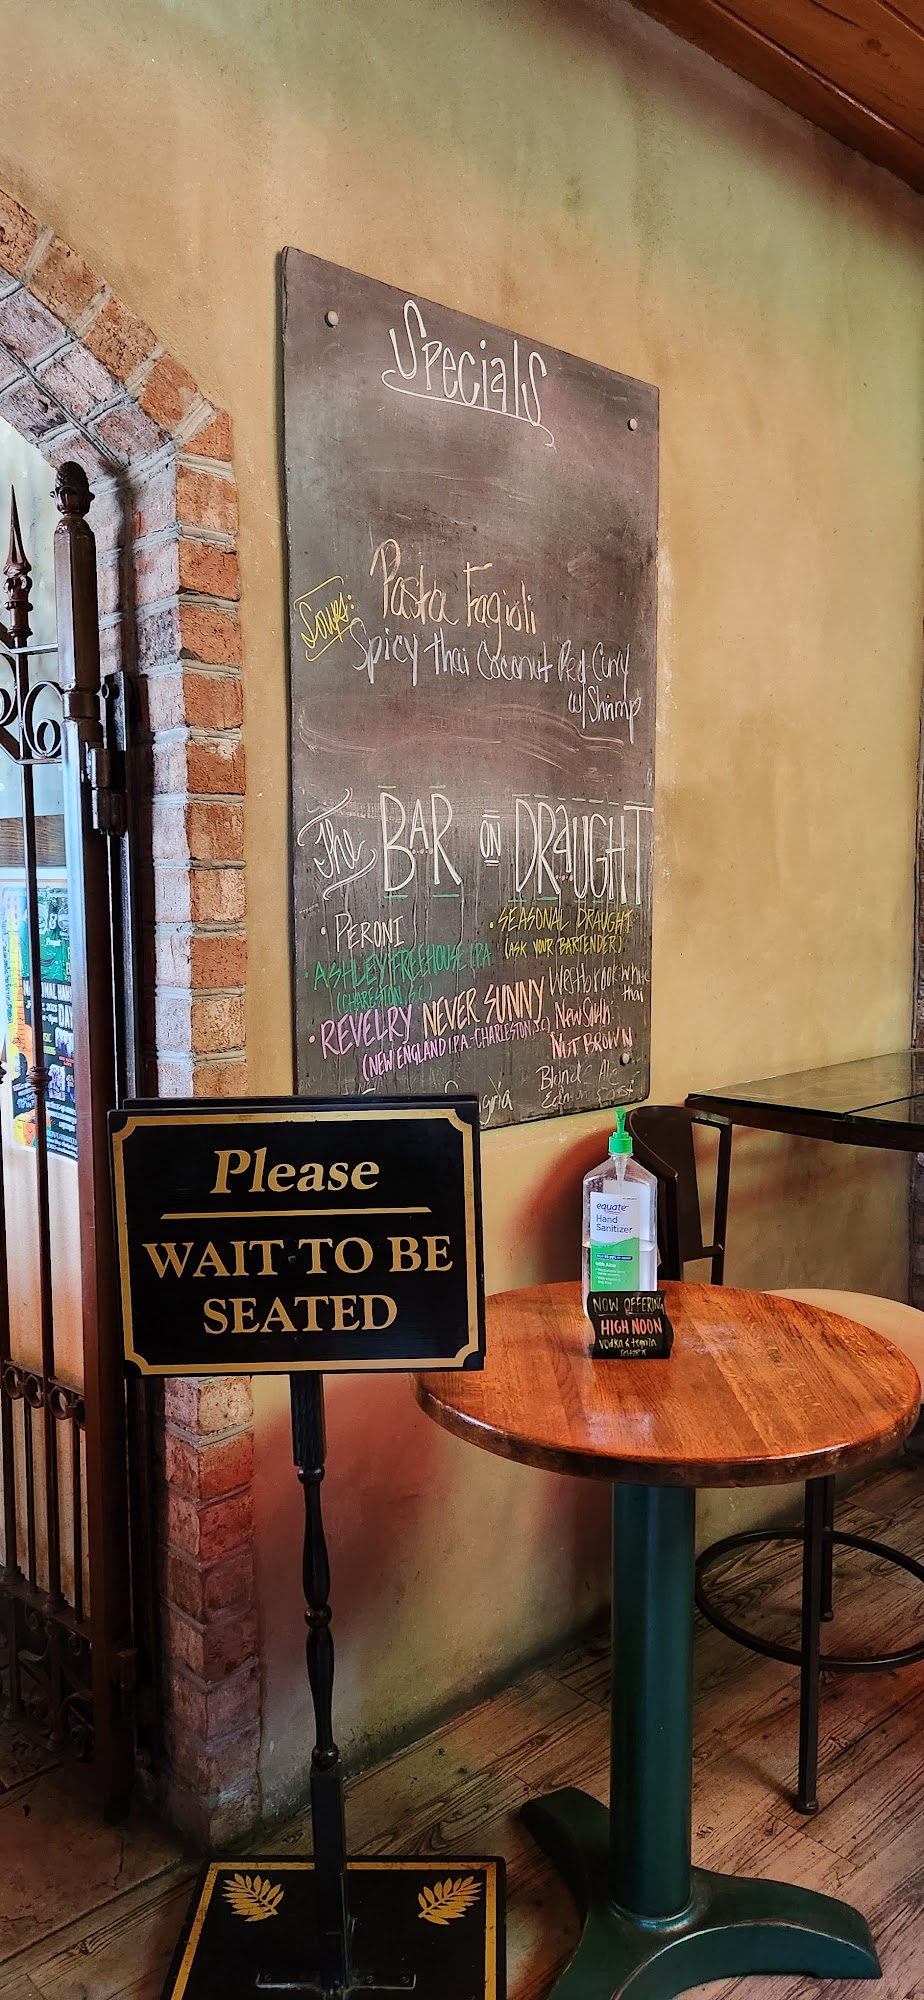 Specials
Soups:
Pasta Fagioli
Spicy Thai Coconut Red Curry
w/ Shrimp
The BAR ON DRAUGHT
• PERONI
• ASHLEY FREEHOUSE IPA
(CHARESTON, S.C.)
• REVELRY NEVER SUNNY
(NEW ENGLAND I.P.A. - CHARLESTON, SC)
• SEASONAL DRAUGHT
(ASK YOUR BARTENDER)
Westbrook White
thai
New South
NUT BROWN
Blonde Ale
Please
WAIT TO BE
SEATED
equate
Hand
Sanitizer
with Aloe
NOW OFFERING
HIGH NOON
vodka & tequila
DAY